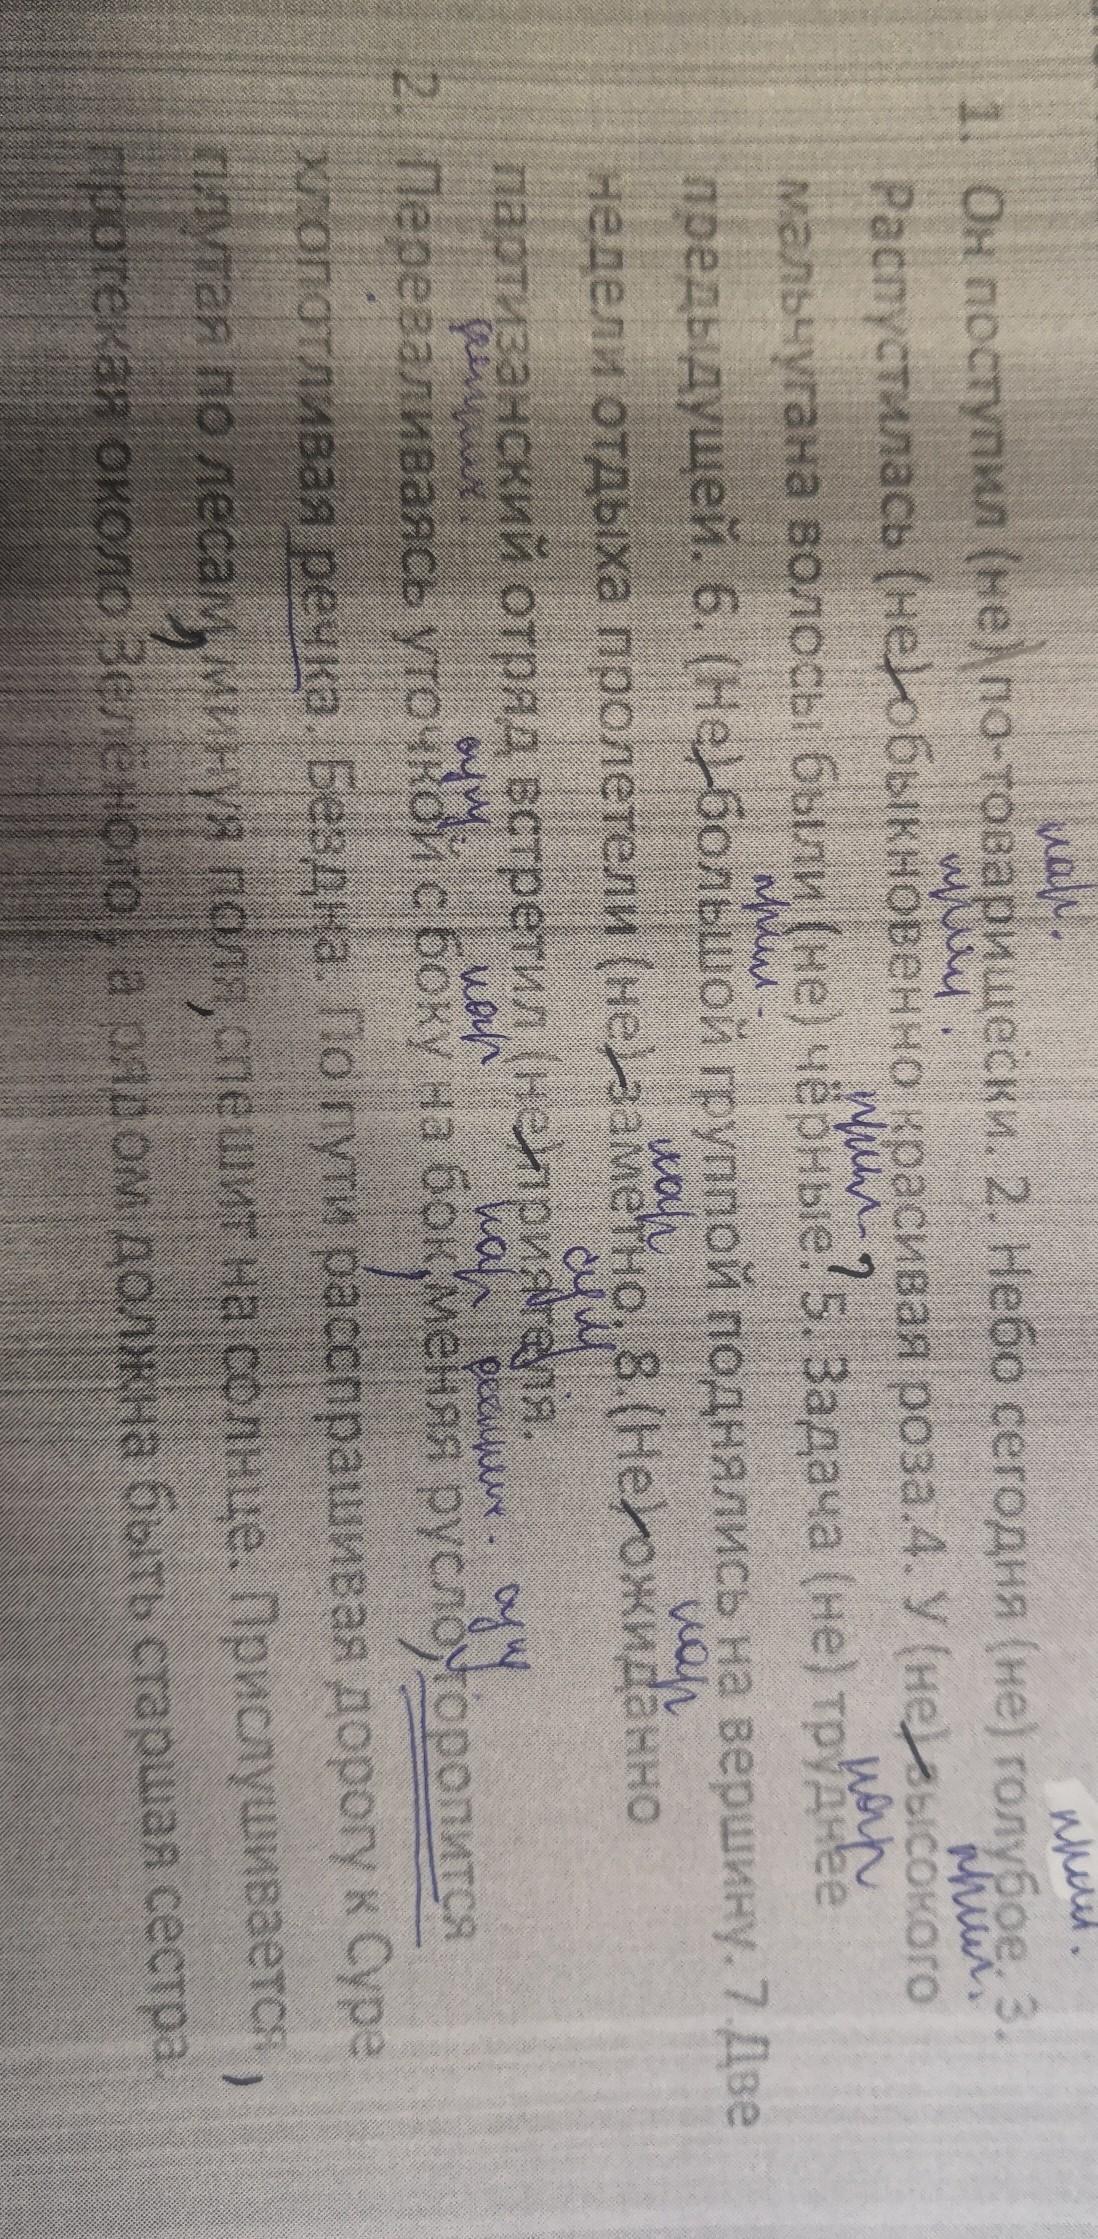 нар.
прил.
1. Он поступил (не) по-товарищески. 2. Небо сегодня (не) голубое. 3.
прил.
Распустилась (не) обыкновенно красивая роза. 4. У (не) высокого
прил. ?
нар
мальчугана волосы были (не) чёрные. 5. Задача (не) труднее
прил.
предыдущей. 6. (Не) большой группой поднялись на вершину. 7. Две
нар
нар
недели отдыха пролетели (не) заметно. 8. (Не) ожиданно
сущ
партизанский отряд встретил (не) приятеля.
нар
нар
2. Переваливаясь уточкой с боку на бок, меня русло, торопится
хлопотливая речка. Бездна. По пути расспрашивая дорогу к Суре
плутая по лесам, минуя поля, спешит на солнце. Прислушивается,
протекая около Зелёного, а рядом должна быть старшая сестра.